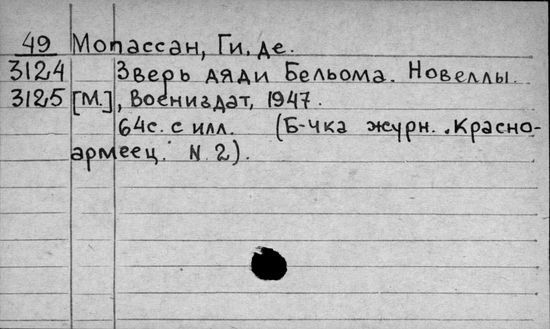 49 Мопассан, Ги, де.
3124 Зверь дяди Бельома. Новеллы.
3125 [М.], Воениздат, 1947.
64с. с илл. (Б-чка журн. "Красно-
армеец." N. 2).